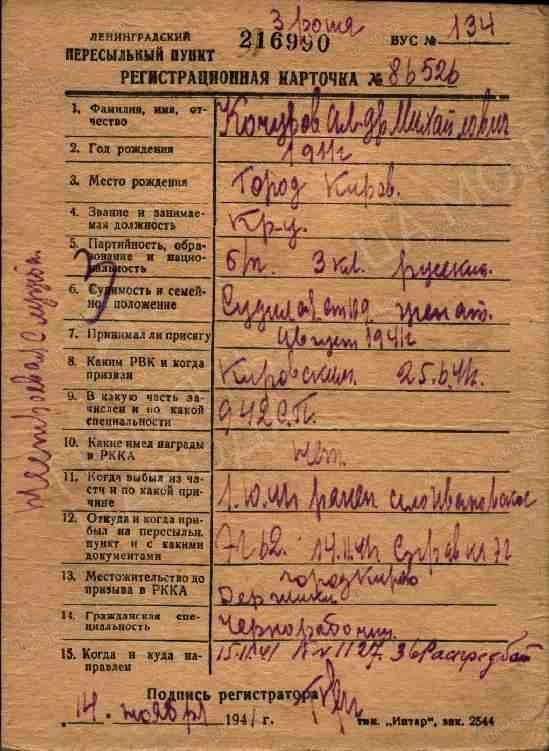 3 рота
ЛЕНИНГРАДСКИЙ
ПЕРЕСЫЛЬНЫЙ ПУНКТ
216990
ВУС № 134
РЕГИСТРАЦИОННАЯ КАРТОЧКА № 86526
1. Фамилия, имя, от-
чество
Ал-др Михайлович
2. Год рождения
1911г
3. Место рождения
Город Киров.
4. Звание и занимае-
мая должность
Кр-ц.
5. Партийность, обра-
зование и нацио-
нальность
б/п. 3 кл. русский.
6. Судимость и семей-
ное положение
женат.
7. Принимал ли присягу
Август 1941г
8. Каким РВК и когда
призван
Кировским. 25.6.41г.
9. В какую часть за-
числен и по какой
специальности
942 С.П.
10. Какие имел награды
в РККА
Нет.
11. Когда выбыл из ча-
сти и по какой при-
чине
ранен село Ивановское
12. Откуда и когда при-
был на пересыльн.
пункт и с какими
документами
14.11.41г Справка
13. Местожительство до
призыва в РККА
город Киров
14. Гражданская спе-
циальность
Чернорабочий.
15. Когда и куда на-
правлен
15.11.41 № 1127. 36 Распредбат
Подпись регистратора
14. ноября 1941 г.
тип. „Интар", зак. 2544